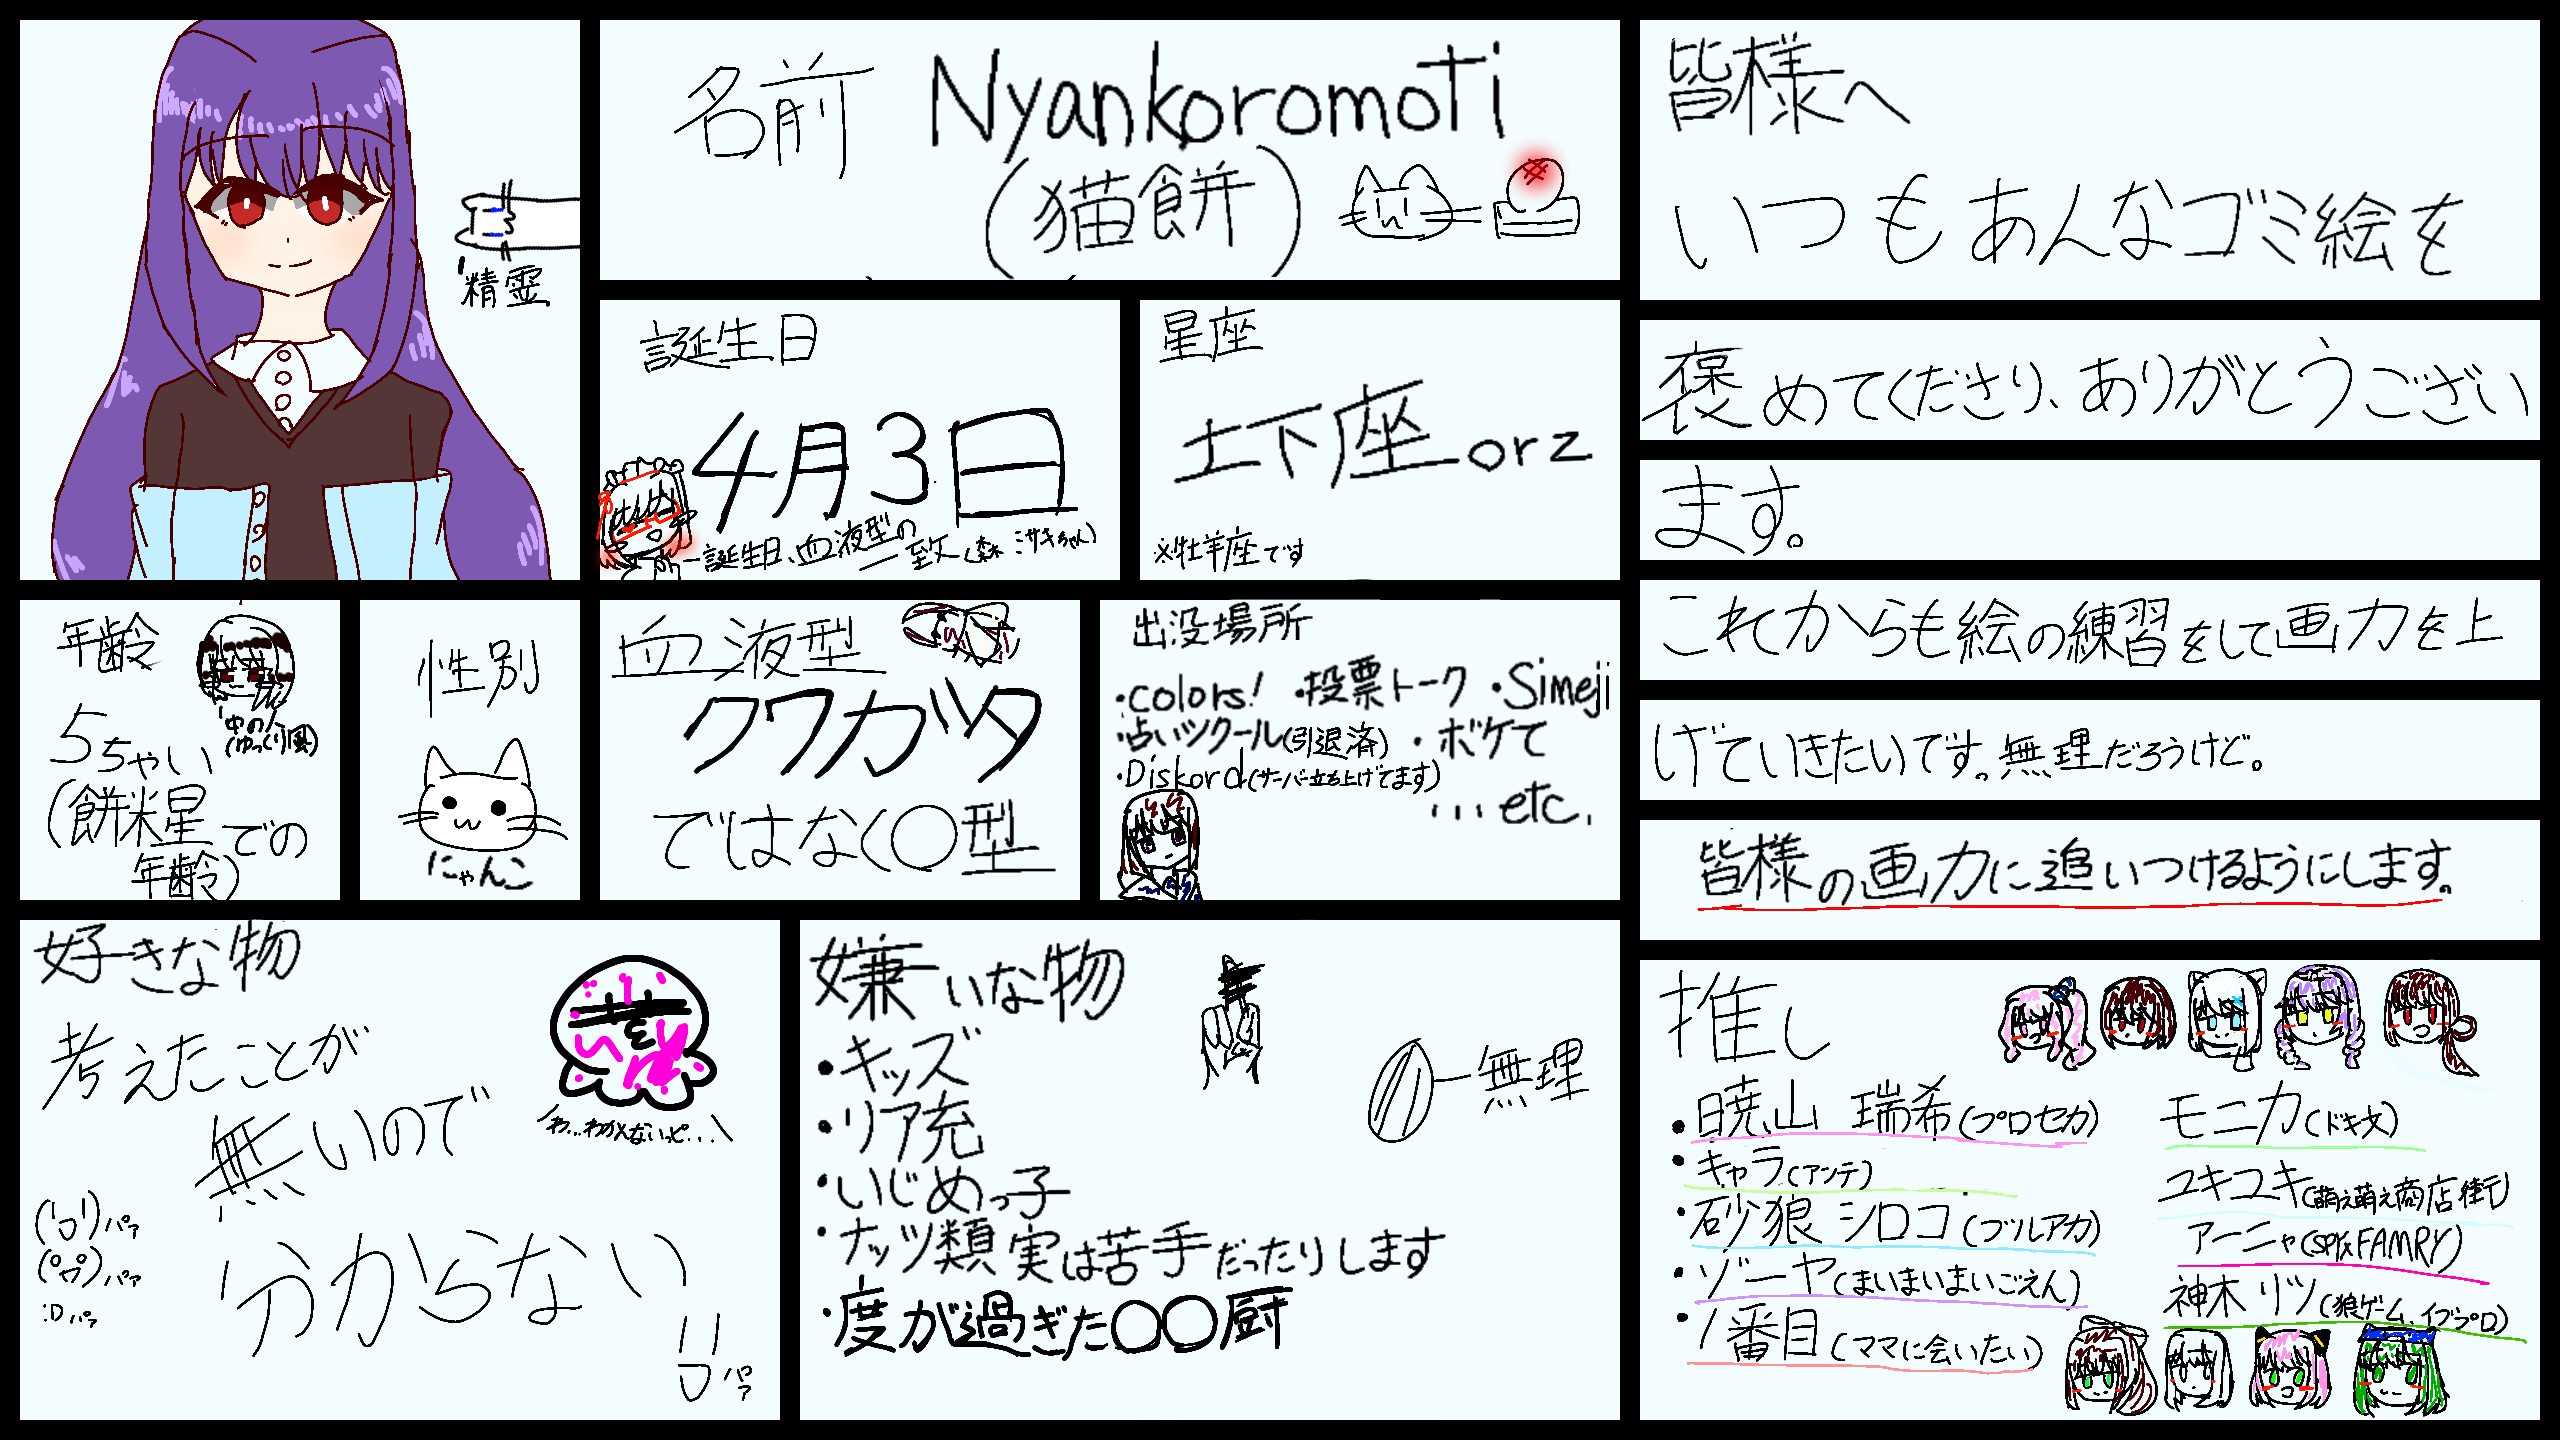 精霊
名前
Nyankoromoti
(猫餅)
誕生日
4月3日
誕生日、血液型の
一致(森ミサキちゃん)
星座
土下座orz
※牡羊座です
年齢
中の人
(ゆっくり風)
5ちゃい
(餅米星での
年齢)
性別
にゃんこ
血液型
クワガツタ
ではなく○型
出没場所
・colors! ・投票トーク ・Simeji
・占いツクール(引退済) ・ボケて
・Diskord(サーバー立ち上げてます)
...etc.
好きな物
考えたことが
無いので
分からない
わ...わかんないっピ...
(‘ロ’)パァ
パァ
:Dパァ
パァ
嫌いな物
・キッズ
・リア充
・いじめっ子
・ナッツ類 実は苦手だったりします
・度が過ぎた○○厨
無理
皆様へ
いつもあんなゴミ絵を
褒めてくださり、ありがとうござい
ます。
これからも絵の練習をして画力を上
げていきたいです。無理だろうけど。
皆様の画力に追いつけるようにします。
推し
・暁山 瑞希(プロセカ)
・キャラ(アンテ)
・砂狼 シロコ(ブルアカ)
・ゾーヤ(まいまいまいごえん)
・1番目(ママに会いたい)
モニカ(ドキ文)
ユキユキ(萌え萌え商店街)
アーニャ(SPY×FAMRY)
神木 リツ(狼ゲーム、イブプロ)